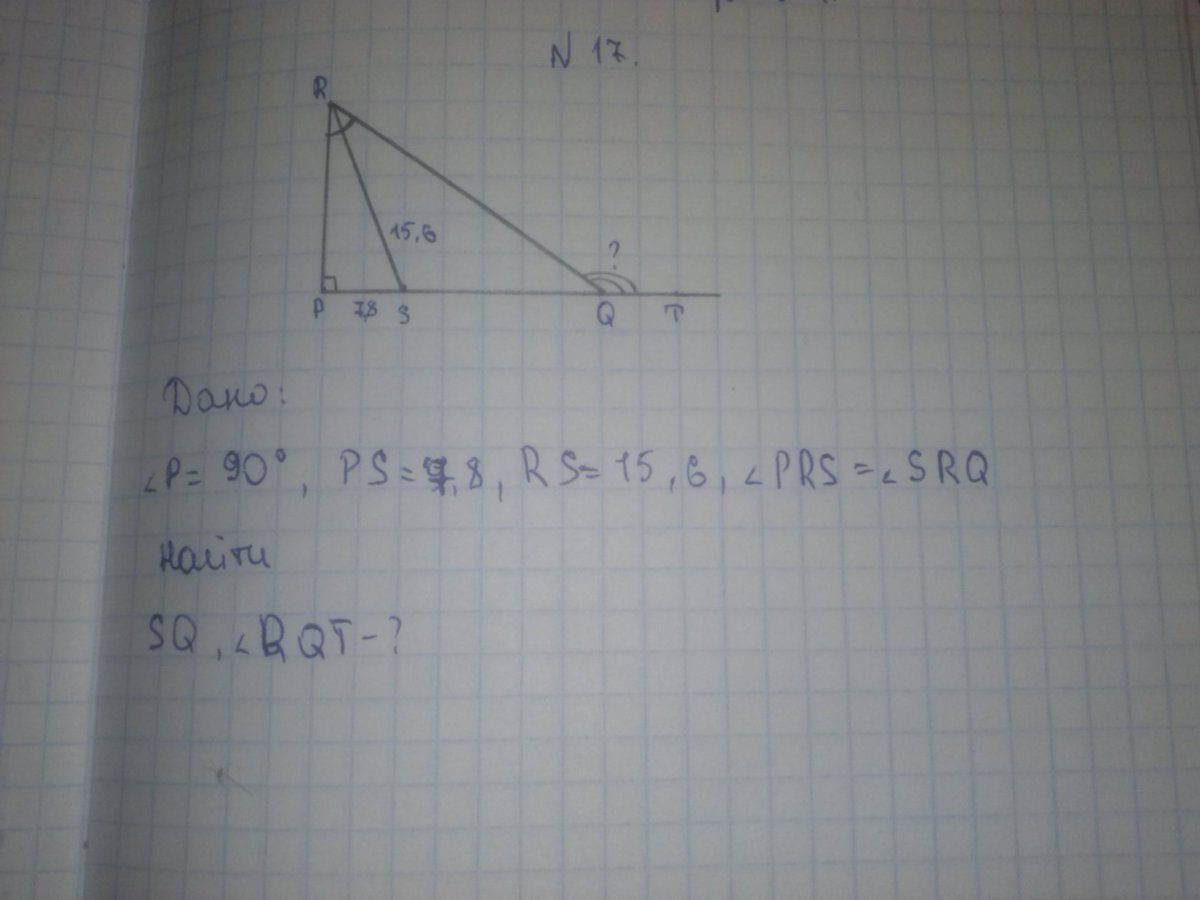 N 17.
R
15,6
?
P 7,8 S Q T
Дано:
∠P = 90°, PS = 7,8, RS = 15,6, ∠PRS = ∠SRQ
Найти
SQ, ∠RQT - ?